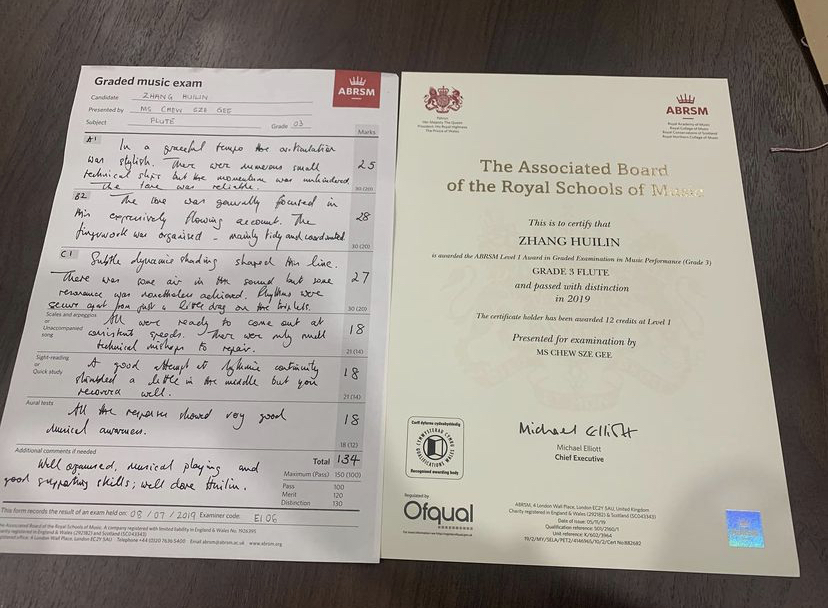 Graded music exam
ABRSM
Candidate ZHANG HUILIN
Presented by MS CHEW SZE GEE
Subject FLUTE Grade 03
Marks
A1 In a graceful tempo the articulation
was stylish. There were numerous small 25
technical slips but the momentum was unhindered.
The tone was reliable. 30 (20)
B2 The tone was generally focused in
this expressively flowing account. The 28
fingerwork was organised - mainly tidy and coordinated.
30 (20)
C1 Subtle dynamic shading shaped this line.
There was some air in the sound but some 27
resonance was nonetheless achieved. Rhythms were
secure apart from just a little drag on the triplets. 30 (20)
Scales and arpeggios
or
Unaccompanied
song
All were ready to come out at 18
consistent speeds. There were only small
technical mishaps to repair. 21 (14)
Sight-reading
or
Quick study
A good attempt at rhythmic continuity 18
stumbled a little in the middle but you
recovered well. 21 (14)
Aural tests
All the responses showed very good 18
musical awareness. 18 (12)
Additional comments if needed
Total 134
Well organised, musical playing and
good supporting skills; well done Huilin.
Maximum (Pass) 150 (100)
Pass 100
Merit 120
Distinction 130
This form records the result of an exam held on: 08/07/2019 Examiner code: E106
The Associated Board of the Royal Schools of Music. A company registered with limited liability in England & Wales No. 1926395
charity registered in England & Wales (292182) and Scotland (SC043343)
office: 4 London Wall Place, London EC2Y 5AU · Telephone +44 (0)20 7636 5400 · Email abrsm@abrsm.ac.uk · www.abrsm.org
Patron
Her Majesty The Queen
President: His Royal Highness
The Prince of Wales
ABRSM
Royal Academy of Music
Royal College of Music
Royal Conservatoire of Scotland
Royal Northern College of Music
The Associated Board
of the Royal Schools of Music
This is to certify that
ZHANG HUILIN
is awarded the ABRSM Level 1 Award in Graded Examination in Music Performance (Grade 3)
GRADE 3 FLUTE
and passed with distinction
in 2019
The certificate holder has been awarded 12 credits at Level 1
Presented for examination by
MS CHEW SZE GEE
Michael Elliott
Michael Elliott
Chief Executive
Corff dyfarnu cydnabyddedig
CYMWYSTERAU CYMRU
QUALIFICATIONS WALES
Recognised awarding body
Regulated by
Ofqual
ABRSM, 4 London Wall Place, London EC2Y 5AU, United Kingdom
Charity registered in England & Wales (292182) & Scotland (SC043343)
Date of issue: 05/11/19
Qualification reference: 501/2160/1
Unit reference: K/602/3964